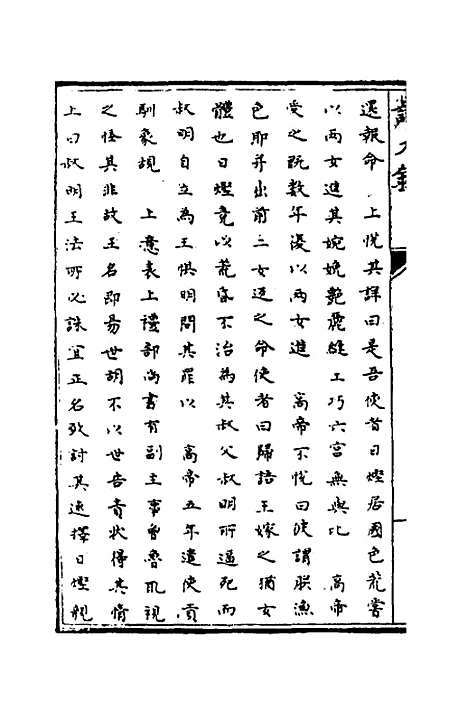 還報命　上悦其詳曰是吾使者日熞居國色荒嘗
以兩女進其婉娩艷麗縫工巧六宮無與比　高帝
受之既數年復以兩女進　高帝不悦曰使謂朕漁
色耶并出前二女返之命使者曰歸語王嫁之猶女
體也日熞竟以荒㤀不治為其叔父叔明所逼死而
叔明自立為王惧明問其罪以　高帝五年遣使貢
馴象覘　上意表上禮部尚書有副主事曾魯取視
之怪其非故王名即易世胡不以世告責状得其情
上曰叔明王法所必誅宜正名致討其速擇日熞親